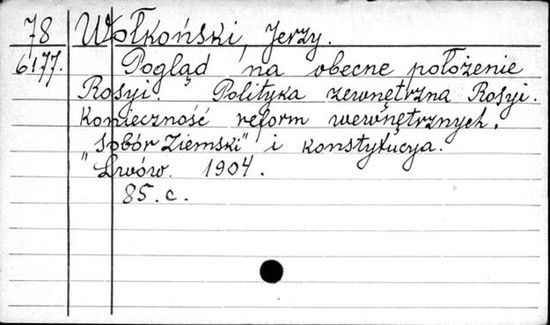 78 Wołkoński, Jerzy.
6177. Pogląd na obecne położenie
Rosyi. Polityka zewnętrzna Rosyi.
Konieczność reform wewnętrznych.
"Sobór Ziemski" i konstytucya.
Lwów. 1904.
85. c.